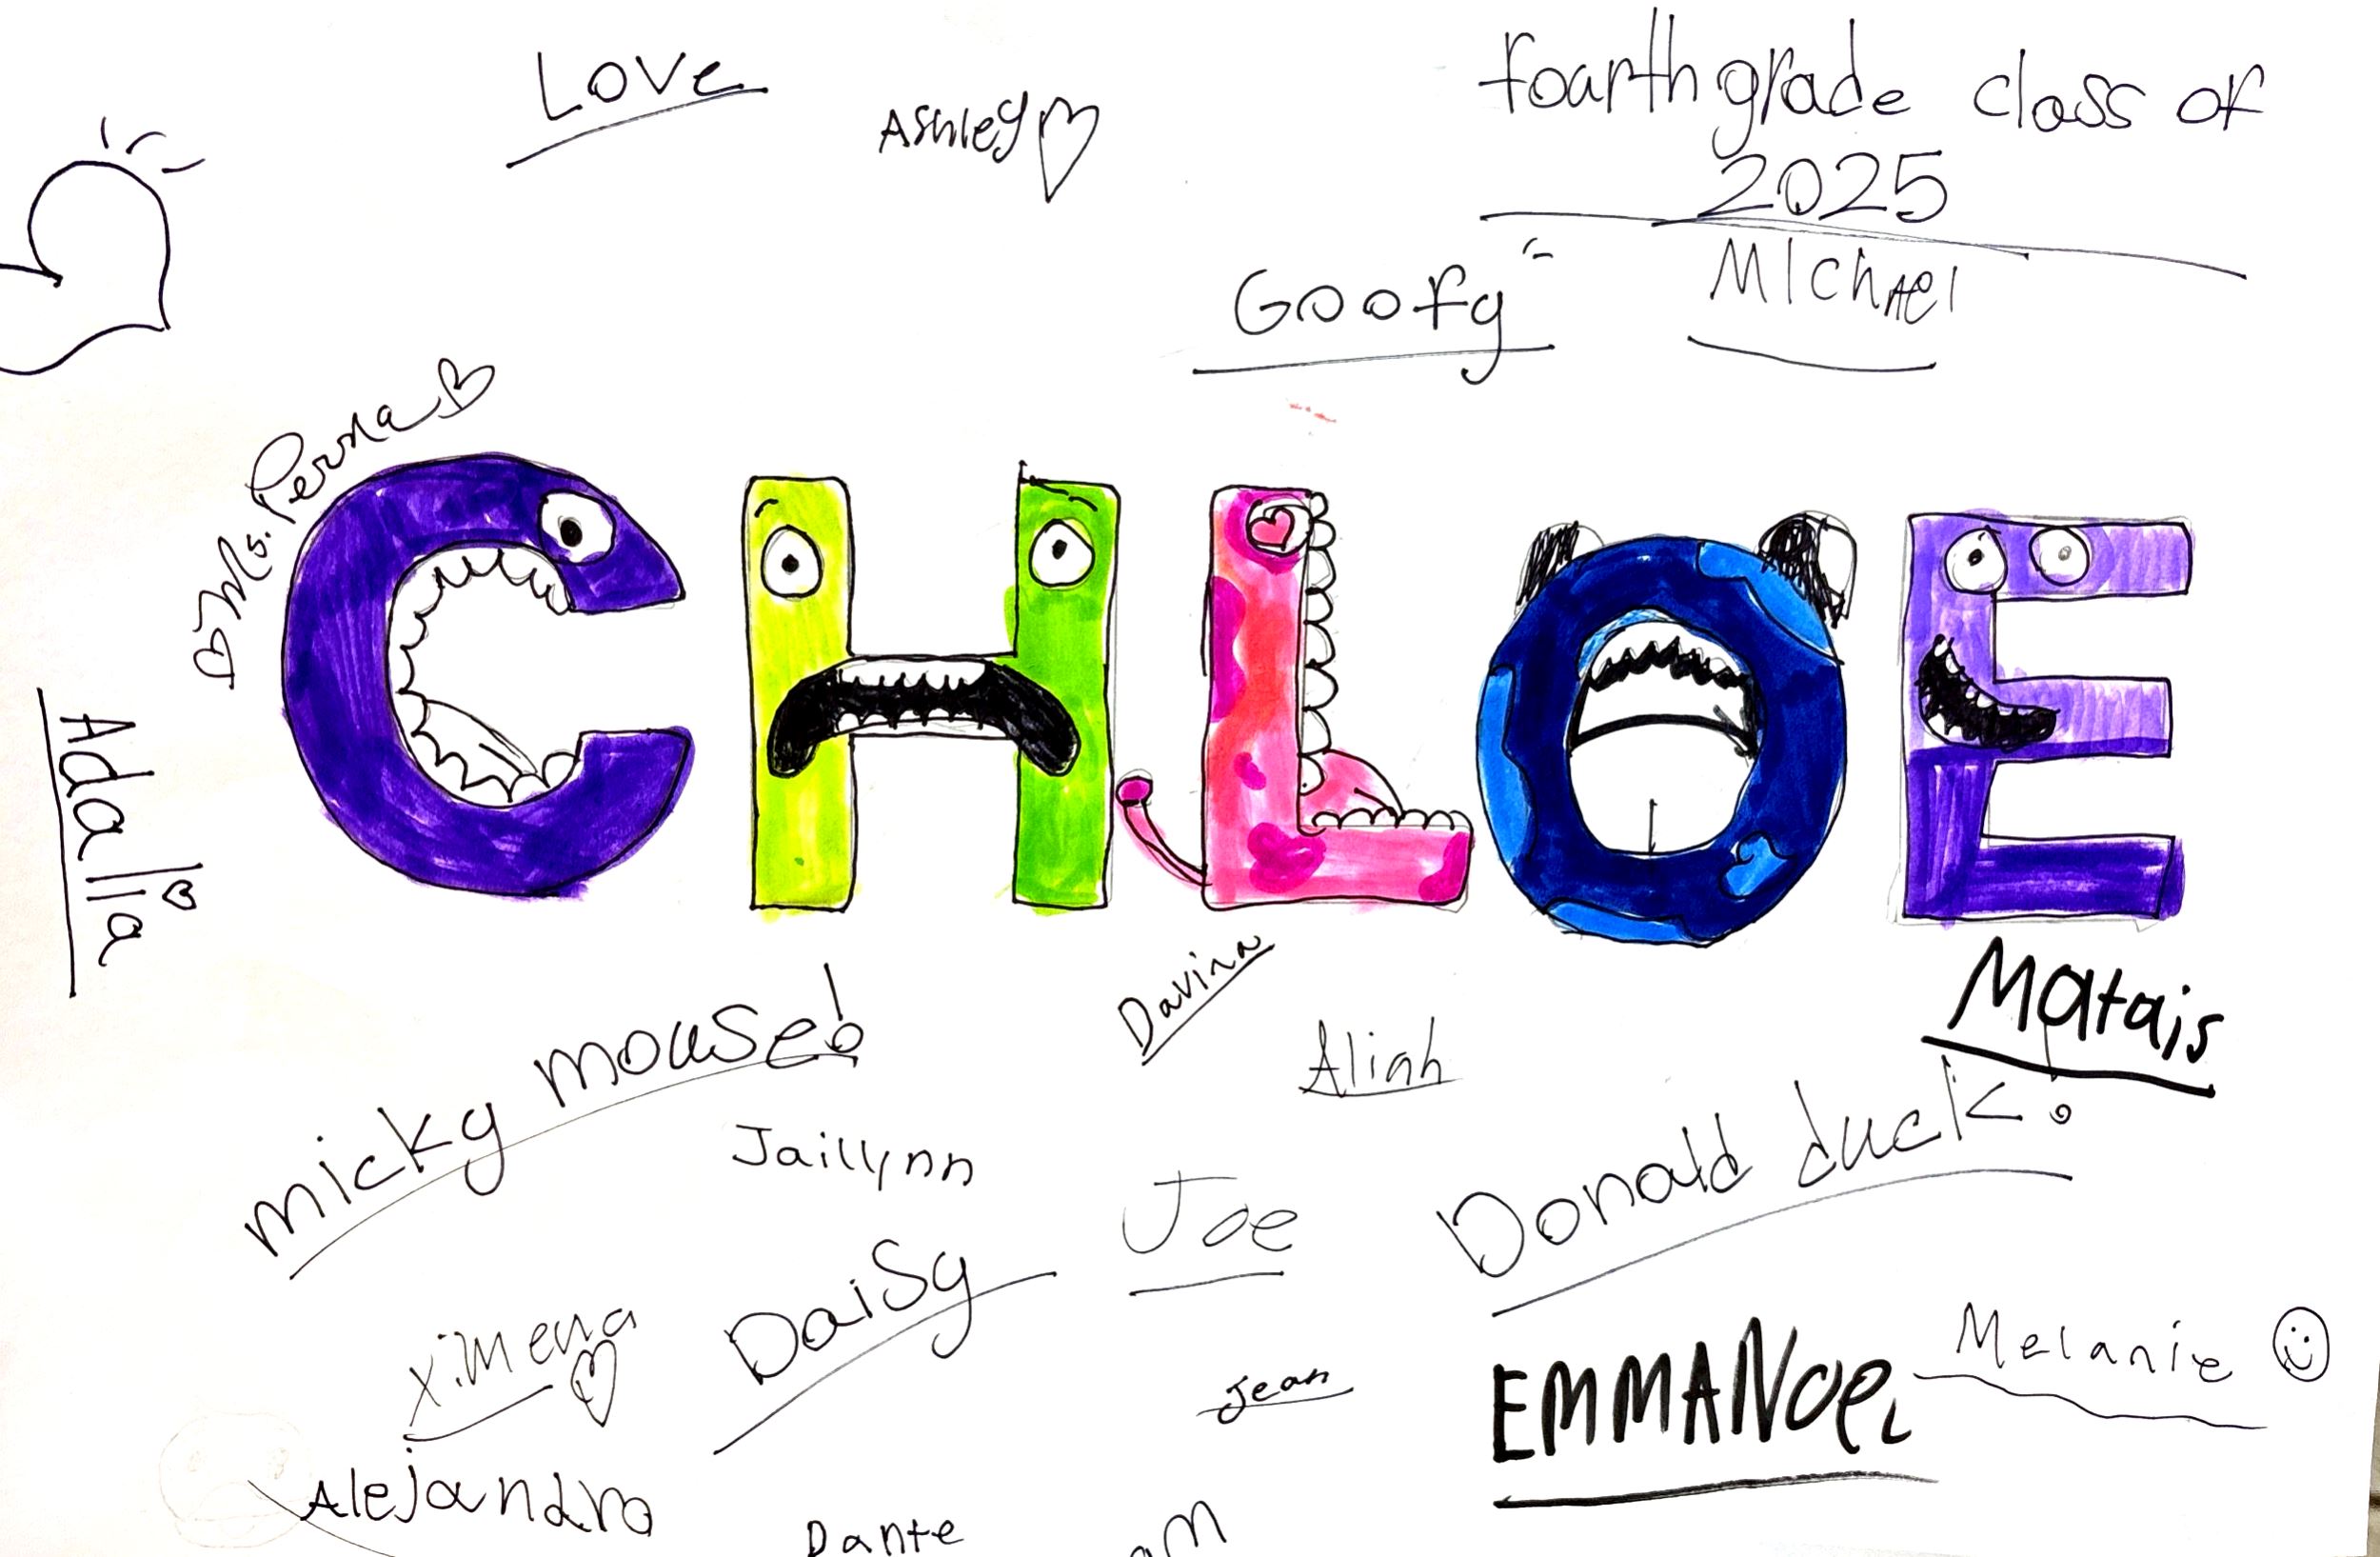 Love
Ashley
fourth grade class of
2025
Goofy
MIchAel
Ms. Perna
CHLOE
Adalia
micky mouse!
Davina
Aliah
Matais
Jaillynn
Joe
Donald duck!
ximena
Daisy
Jean
EMMANUEL
Melanie
Alejandro
Dante